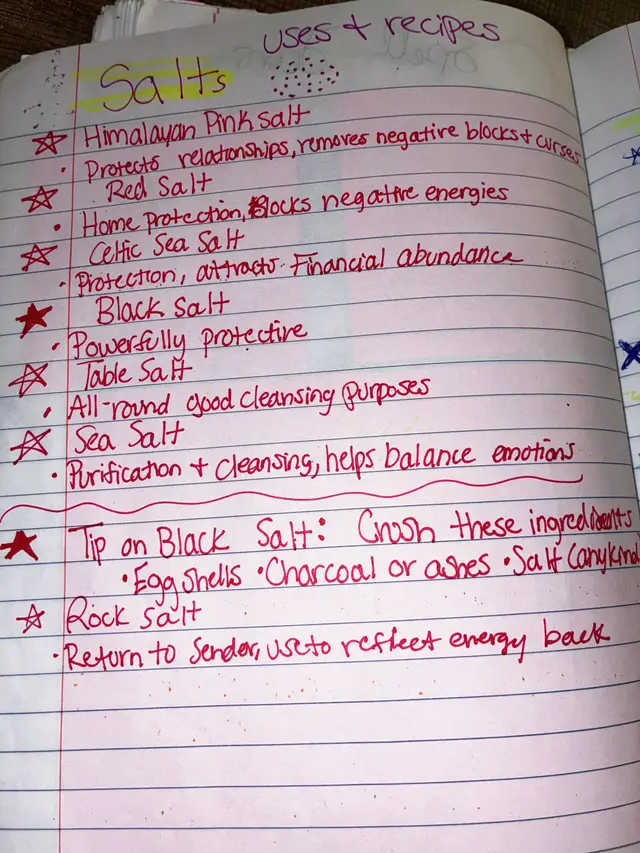 uses + recipes
Salts
Himalayan Pink salt
• Protects relationships, removes negative blocks + curses
Red Salt
• Home protection, Blocks negative energies
Celtic Sea Salt
• Protection, attracts Financial abundance
Black Salt
• Powerfully protective
Table Salt
• All-round good cleansing purposes
Sea Salt
• Purification + cleansing, helps balance emotions
Tip on Black Salt: Crush these ingredients
• Egg shells • Charcoal or ashes • Salt (any kind
Rock salt
• Return to Sender, use to reflect energy back